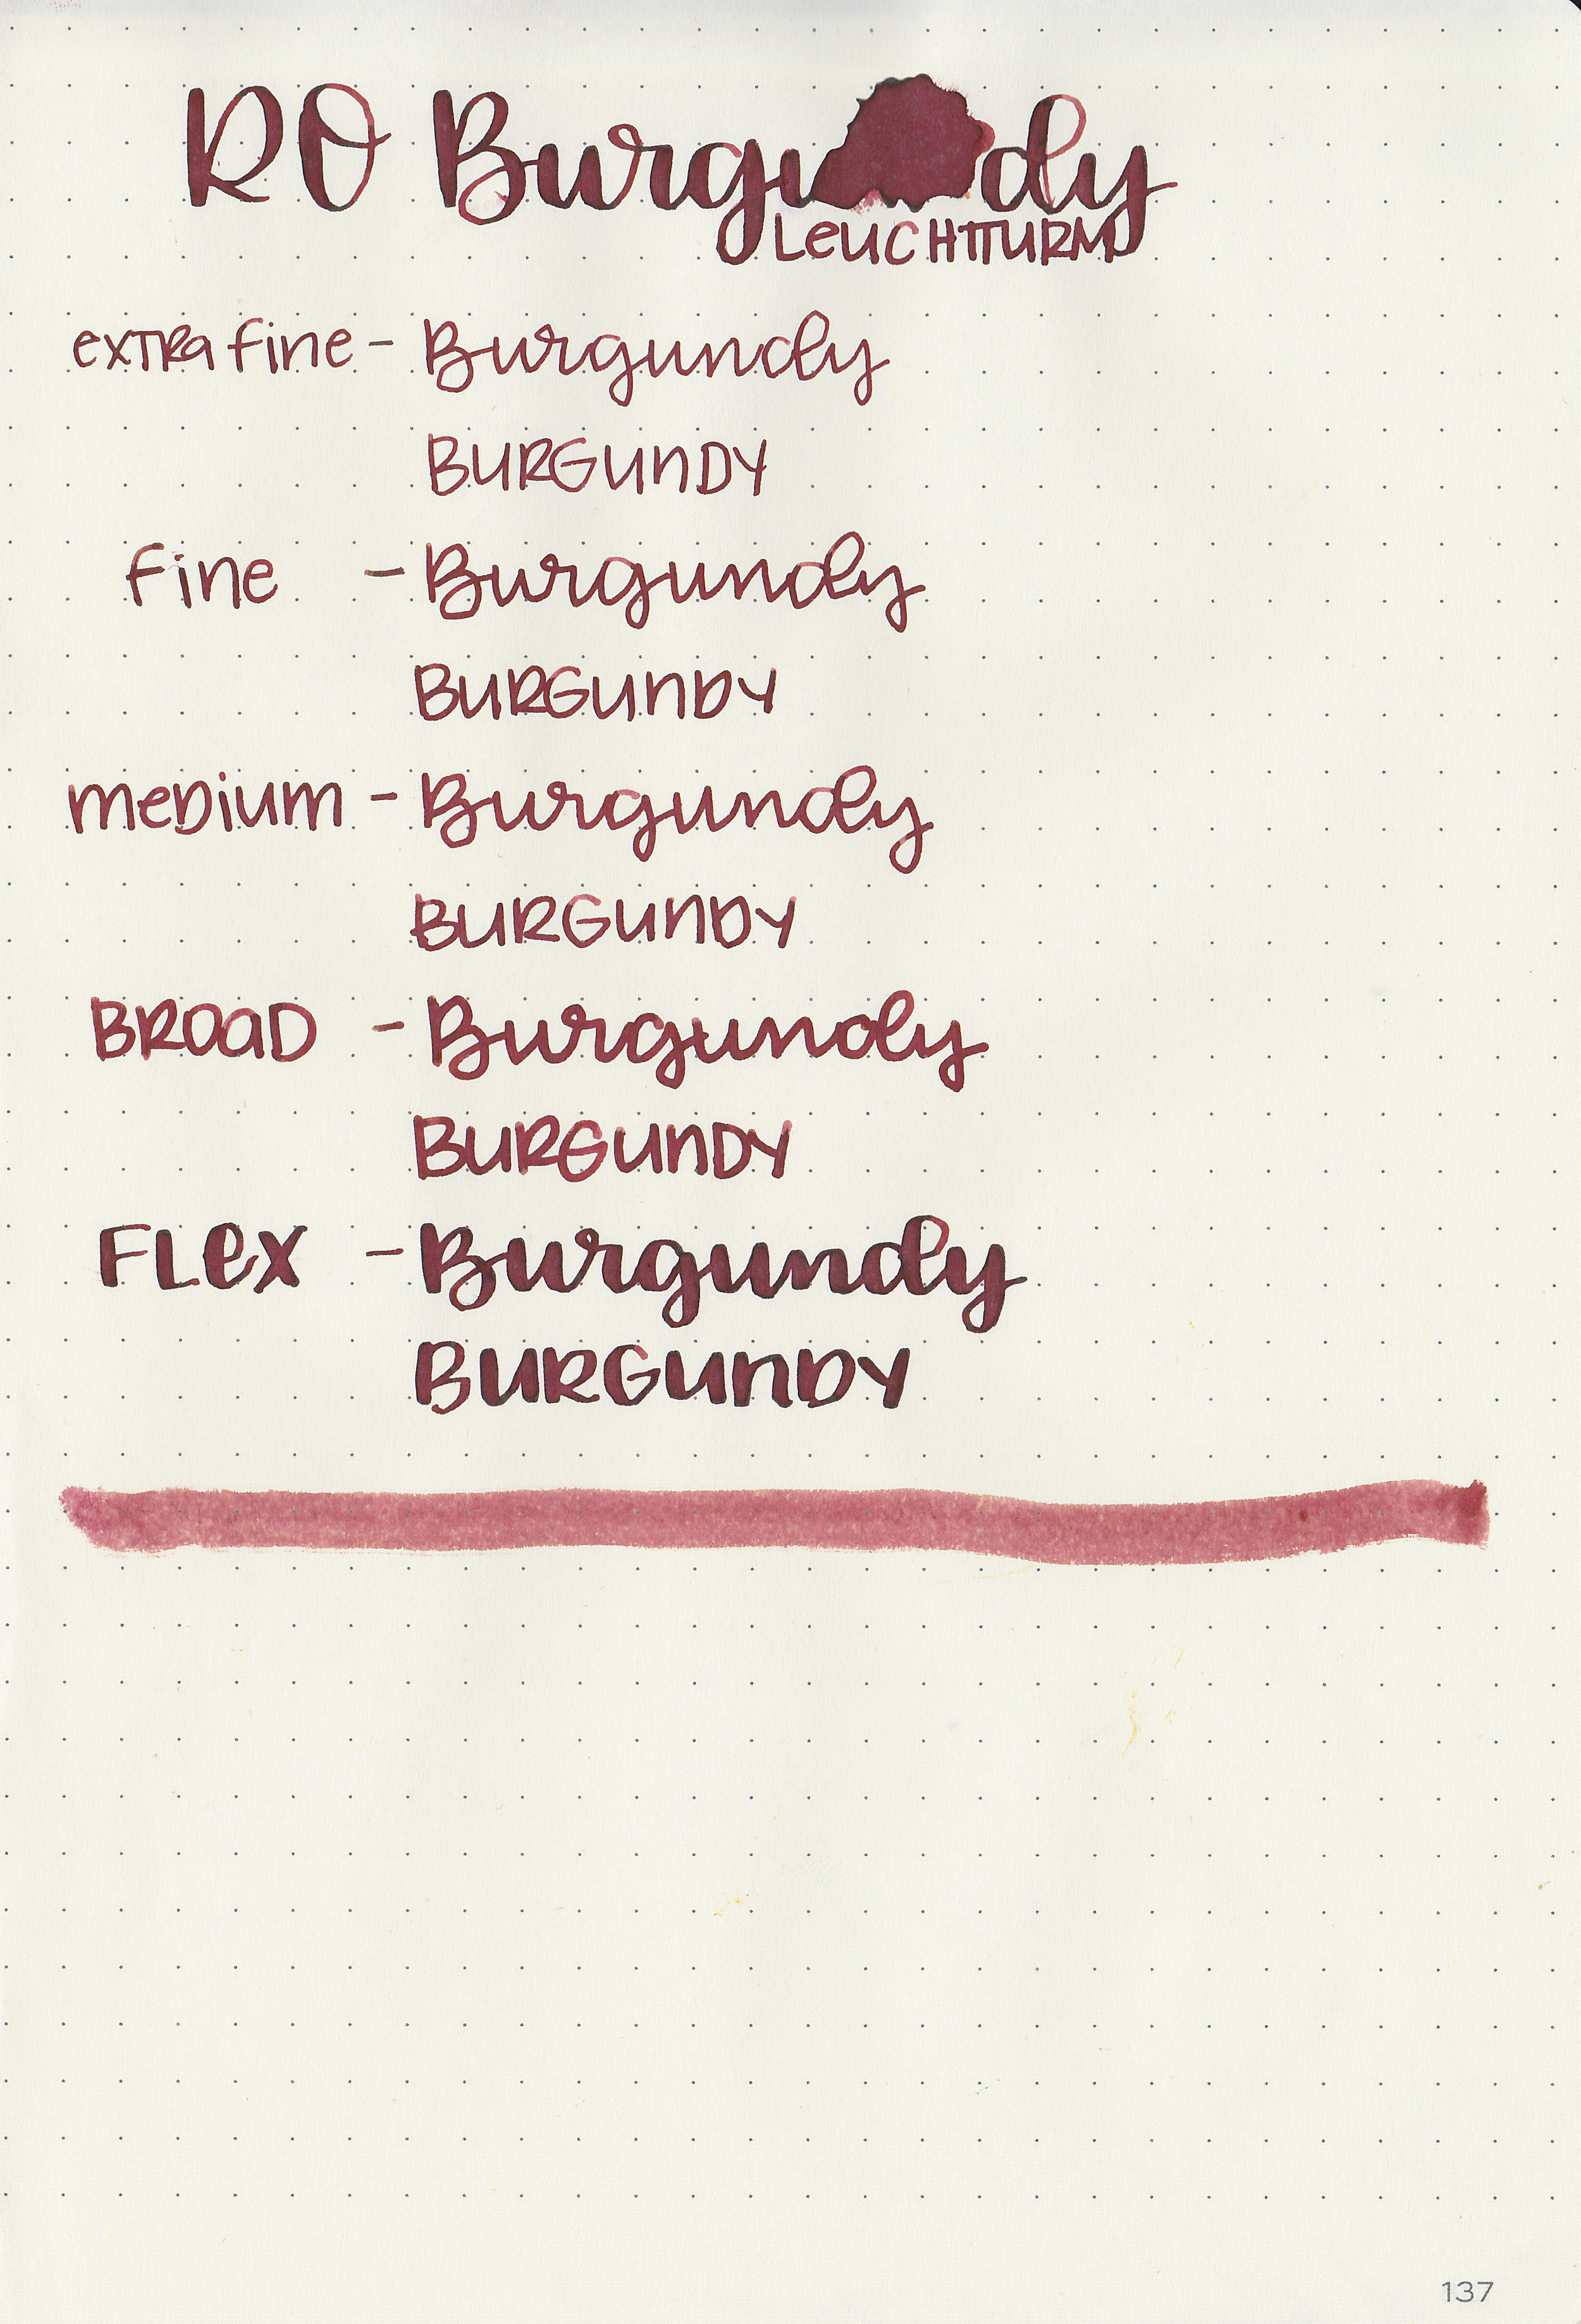 RO Burgundy
LeuchtTURM
exTRa fine - Burgundy
BURGUnDY
fine - Burgundy
BURGUnDY
meDium - Burgundy
BURGUnDY
BROaD - Burgundy
BURGUnDY
FLex - Burgundy
BURGUnDY
137